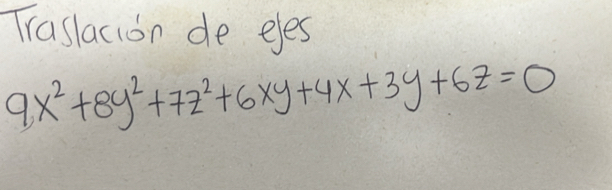 Traslación de ejes
9x²+8y²+7z²+6xy+4x+3y+6z=0